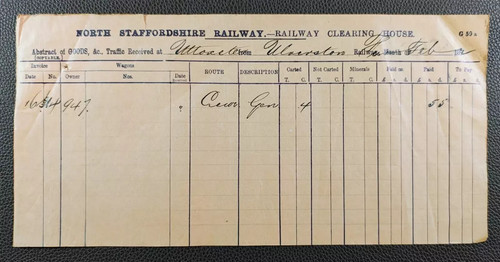 NORTH STAFFORDSHIRE RAILWAY.—RAILWAY CLEARING HOUSE. G 39
Abstract of GOODS, &c. Traffic Received at Uttoxeter from Ulverston Railway Month Feb
Invoice Wagons ROUTE DESCRIPTION Carted Not Carted Minerals Paid on Paid To Pay
Date No. Owner Nos. Date T. C. T. C. T. C.
16 947 " Crewe Gen 4 55